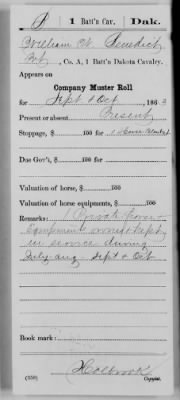 B | 1 Batt'n Cav. | Dak.
William W. Benedict
Pvt, Co. A, 1 Batt'n Dakota Cavalry.
Appears on
Company Muster Roll
for Sept & Oct, 186
Present or absent Present
Stoppage, $ 100 for 1 Horse Blanket
Due Gov't, $ 100 for
Valuation of horse, $ 100
Valuation of horse equipments, $ 100
Remarks: 1 Private horse &
Equipments owned & kept
in service during
July Aug Sept & Oct
Book mark:
Holbrook
(358)
Copyist.